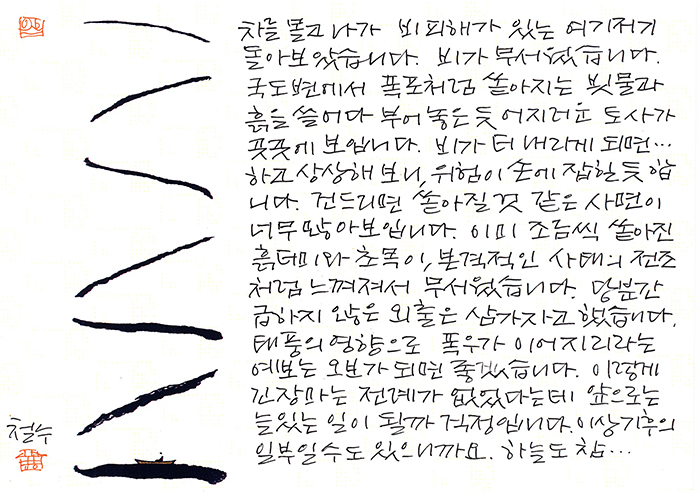 차를 몰고 나가 비 피해가 있는 여기저기
돌아보았습니다. 비가 무서웠습니다.
국도변에서 폭포처럼 쏟아지는 빗물과
흙을 쓸어다 부어 놓은 듯 어지러운 토사가
곳곳에 보입니다. 비가 더 내리게 되면…
하고 상상해 보니, 위험이 손에 잡힐 듯 합
니다. 건드리면 쏟아질 것 같은 사면이
너무 많아 보입니다. 이미 조금씩 쏟아진
흙더미와 초목이, 본격적인 사태의 전조
처럼 느껴져서 무서웠습니다. 당분간
급하지 않은 외출은 삼가자고 했습니다.
태풍의 영향으로 폭우가 이어지리라는
예보는 오보가 되면 좋겠습니다. 이렇게
긴 장마는 전례가 없었다는데 앞으로는
늘 있는 일이 될까 걱정입니다. 이상기후의
일부일 수도 있으니까요. 하늘도 참…
철수